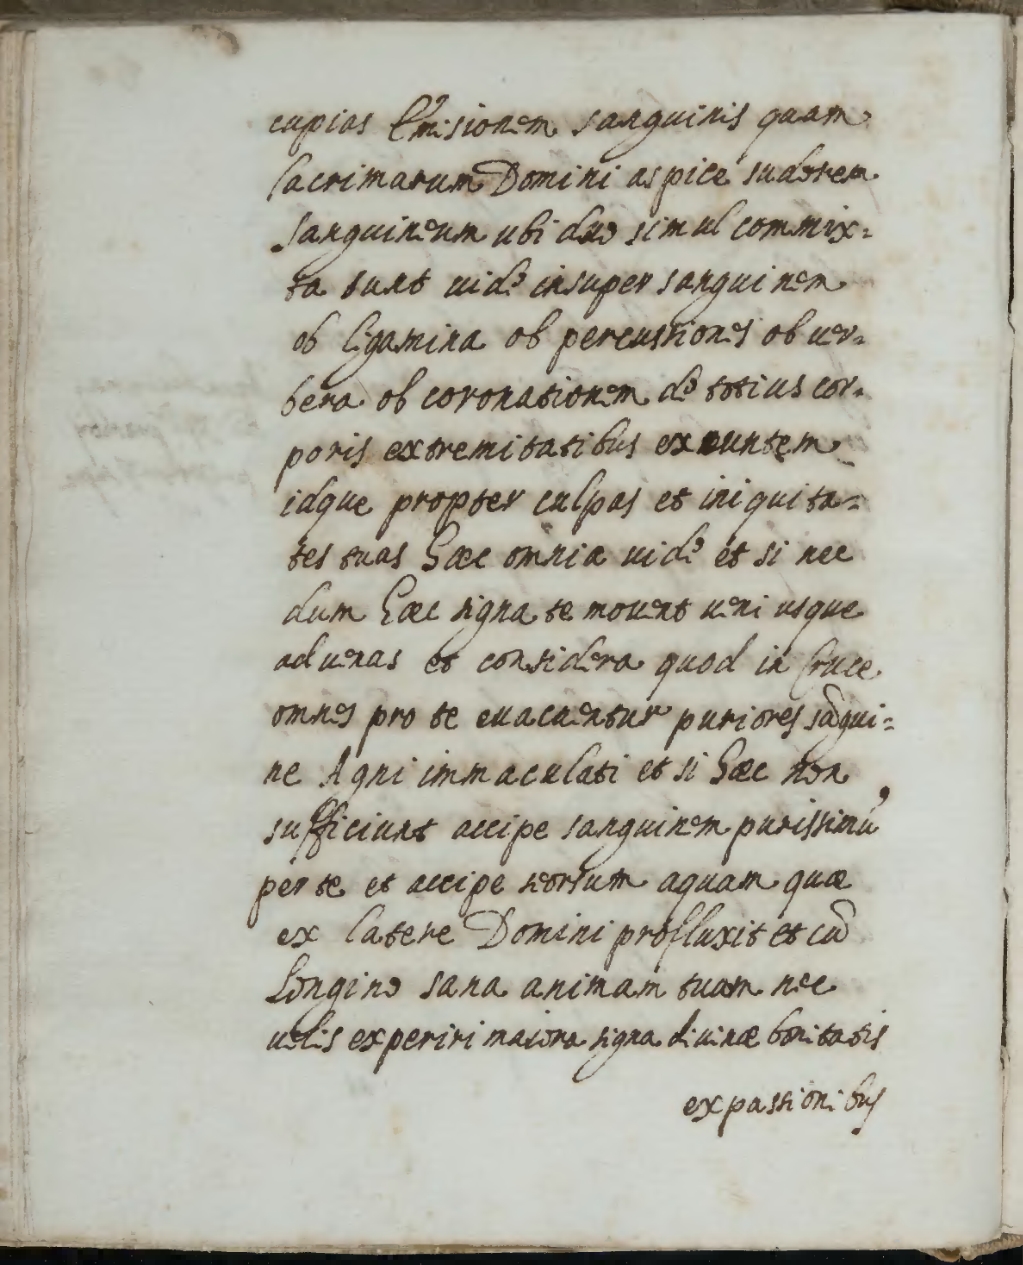 cupias Emisionem sanguinis quam
lacrimarum Domini aspice sudorem
sanguineum ubi duo simul commix=
ta sunt vide insuper sanguinem
ob ligamina ob percussiones ob ver=
bera ob coronationem de totius cor=
poris extremitatibus exeuntem
idque propter culpas et iniquita=
tes tuas hæc omnia vide et si nec
dum hæc signa te movent veni usque
ad venas et considera quod in Cruce
omnes pro te evacuentur puriores sãgui=
ne Agni immaculati et si hæc non
sufficiunt accipe sanguinem purissimũ
per te et accipe seorsum aquam quæ
ex latere Domini profluxit et cũ
Longino sana animam tuam nec
velis experiri maiora signa divinæ bonitatis
ex passionibus